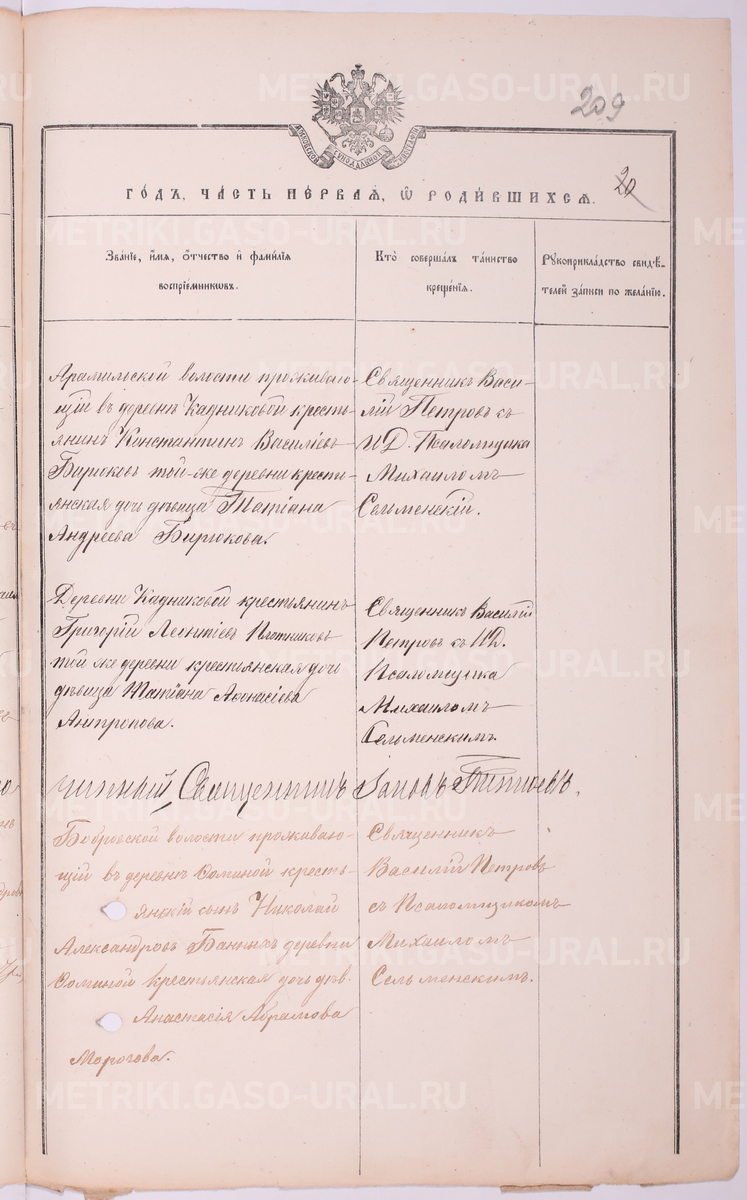 209
20
МОСКОВСКОЙ СѴНОДАЛЬНОЙ ТѴПОГРАФІИ
ГО́ДЪ, ЧА́СТЬ ПЕ́РВАЯ, Ѽ РОДИ́ВШИХСЯ.
Зва́нїе, и́мѧ, ѻ́тчество и҆ фами́лїѧ воспрїе́мникѡвъ.
Кто̀ соверша́лъ та́инство креще́нїѧ.
Рꙋкоприкла́дство свидѣ́телей за́писи по жела́нїю.
Арамильской волости проживаю-
щій въ деревнѣ Кадниковой кресть-
янинъ Константинъ Василіевъ
Бирюковъ той-же деревни кресть-
янская дочь дѣвица Татіана
Андреева Бирюкова.
Священникъ Васи-
лій Петровъ съ
И.Д. Псаломщика
Михаиломъ
Сельменскій.
Деревни Кадниковой крестьянинъ
Григорій Леонтіевъ Плотниковъ
той же деревни крестьянская дочь
дѣвица Татіана Аѳонасіева
Антропова.
Священникъ Василій
Петровъ съ И.Д.
Псаломщика
Михаиломъ
Сельменскимъ.
чинный, Священникъ Іаковъ
Бобровской волости проживаю-
щій въ деревнѣ Ѳоминой кресть-
янскій сынъ Николай
Александровъ Баныхъ деревни
Ѳоминой крестьянская дочь дѣв.
Анастасія Абрамова
Морогова.
Священникъ
Василій Петровъ
съ Псаломщикомъ
Михаиломъ
Сельменскимъ.
METRIKI.GASO-URAL.RU